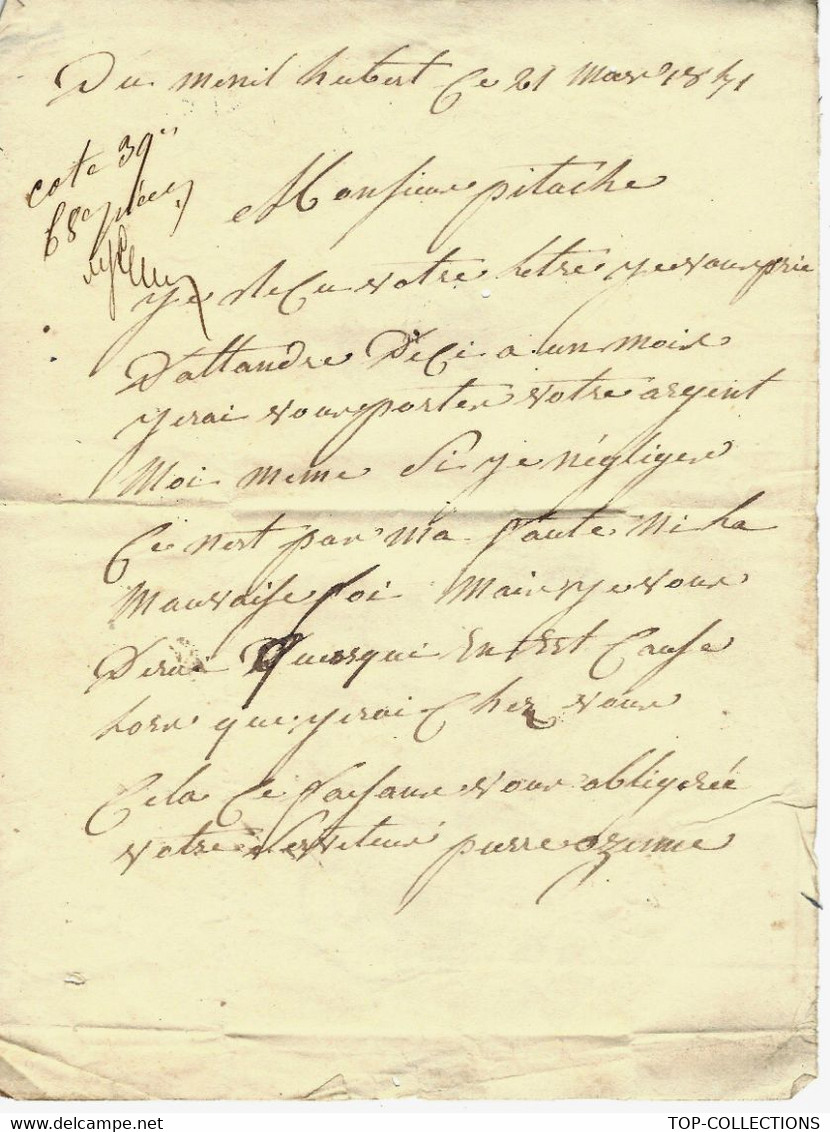 Du menil hubert Ce 21 Mars 1841
cote 39e
68e pièce
Monsieur pitache
ye Recu votre letre ye vous prie
Dattandre Deci a un mois
yerai vous porter votre argent
Moi meme Si ye négliger
Ce nest pas ma faute Ni la
Mauvaise foi Mais ye vous
Derai qui En Est Cause
lors que yerai Chez vous
Cela Ce faisans vous obligerée
votre Serviteur pierre ozenne
TOP-COLLECTIONS